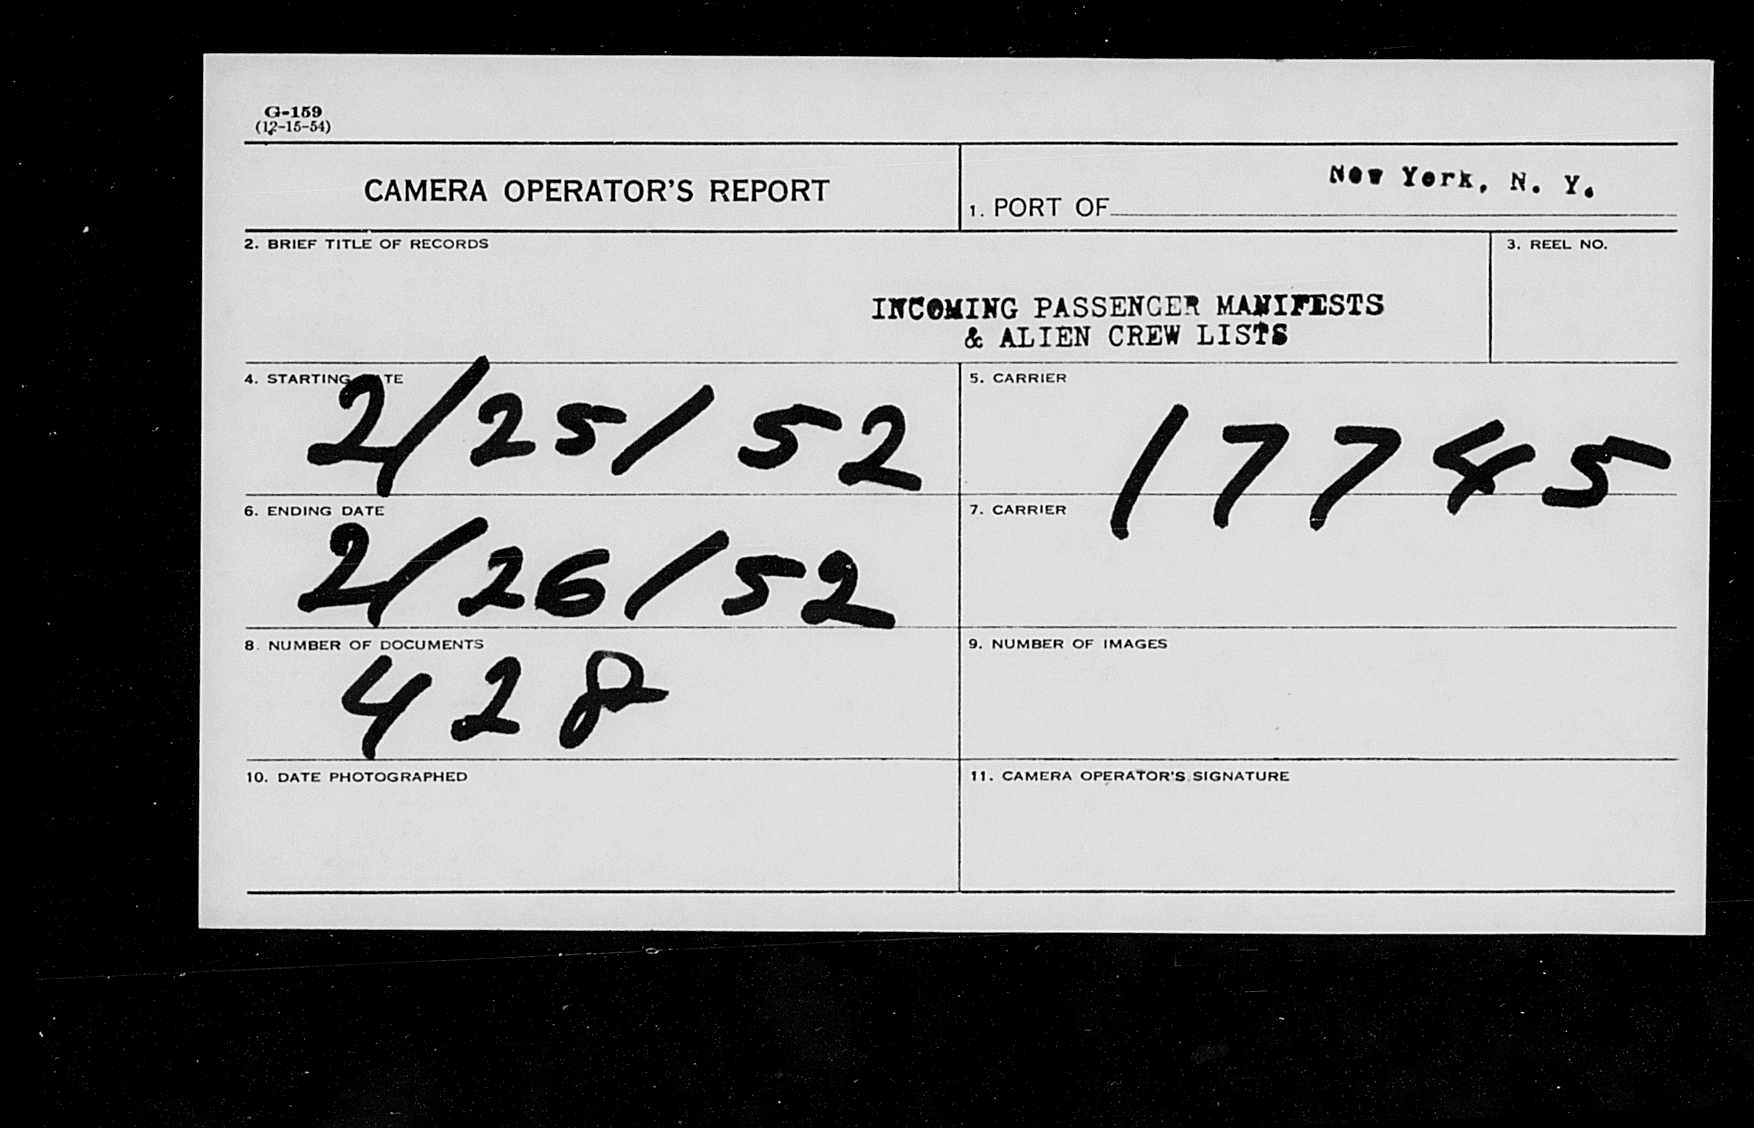 G-159
(12-15-54)
CAMERA OPERATOR'S REPORT
1. PORT OF New York, N. Y.
2. BRIEF TITLE OF RECORDS
INCOMING PASSENGER MANIFESTS
& ALIEN CREW LISTS
3. REEL NO.
4. STARTING DATE
2/25/52
5. CARRIER
17745
6. ENDING DATE
2/26/52
7. CARRIER
8. NUMBER OF DOCUMENTS
428
9. NUMBER OF IMAGES
10. DATE PHOTOGRAPHED
11. CAMERA OPERATOR'S SIGNATURE